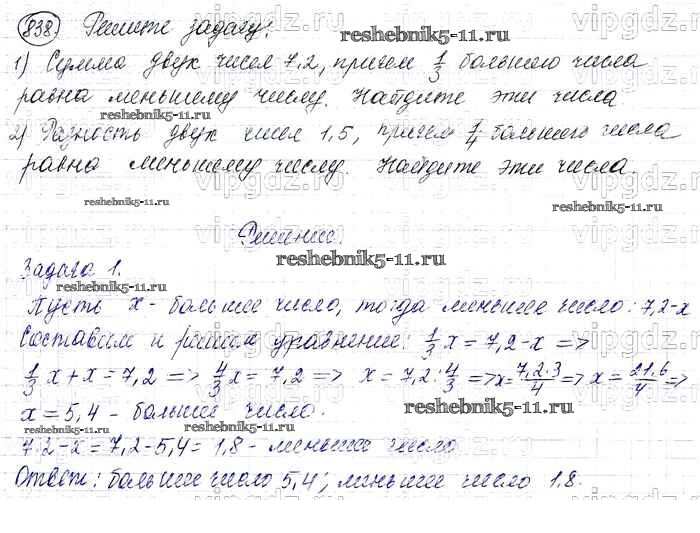 838. Решите задачу:
1) Сумма двух чисел 7,2, причем 1/3 большего числа
равна меньшему числу. Найдите эти числа.
2) Разность двух чисел 1,5, причем 1/4 большего числа
равна меньшему числу. Найдите эти числа.
Решение.
Задача 1.
Пусть x - большее число, тогда меньшее число: 7,2-x
Составим и решим уравнение: 1/3 x = 7,2-x =>
1/3 x + x = 7,2 => 4/3 x = 7,2 => x = 7,2 : 4/3 => x = 7,2·3/4 => x = 21,6/4 =>
x = 5,4 - большее число.
7,2-x = 7,2-5,4 = 1,8 - меньшее число
Ответ: большее число 5,4; меньшее число 1,8.
reshebnik5-11.ru
reshebnik5-11.ru
reshebnik5-11.ru
reshebnik5-11.ru
reshebnik5-11.ru
reshebnik5-11.ru
reshebnik5-11.ru
reshebnik5-11.ru
vipgdz.ru